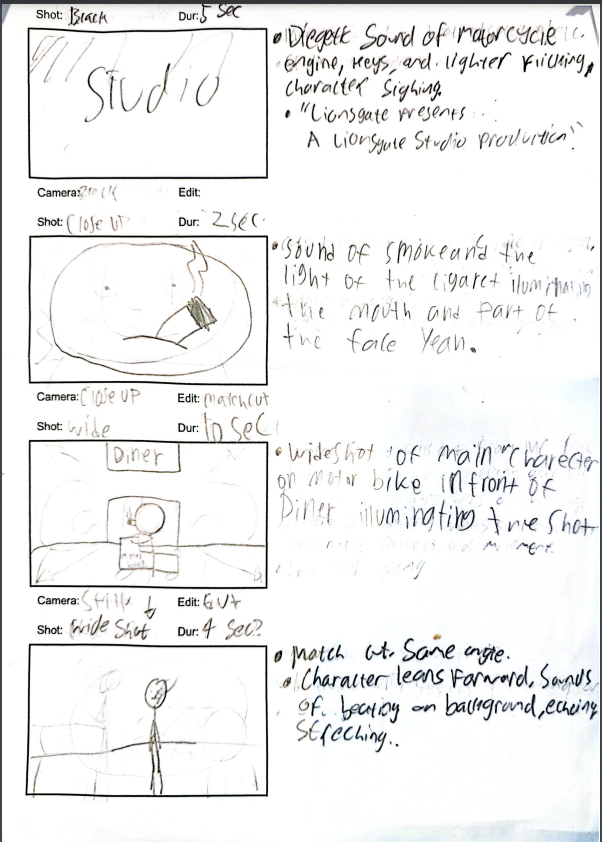 Shot: Black Dur: 5 Sec
Studio
• Diegetic Sound of motorcycle
engine, Keys, and lighter Flicking,
character Sighing.
• "Lionsgate presents . .
A Lionsgate Studio production"
Camera: Black Edit:
Shot: Close UP Dur: 2 Sec.
• Sound of smoke and the
light of the cigaret iluminating
the mouth and part of
the face Yeah.
Camera: Close UP Edit: matchcut
Shot: Wide Dur: 10 Sec
Diner
• wideshot of main charecter
on motor bike infront of
Diner illuminating the Shot
movement.
Camera: Still Edit: Cut
Shot: Wide Shot Dur: 4 Sec?
• Match cut. Same angle.
• Character leans Forward, Sounds
of. beating on background, echoing